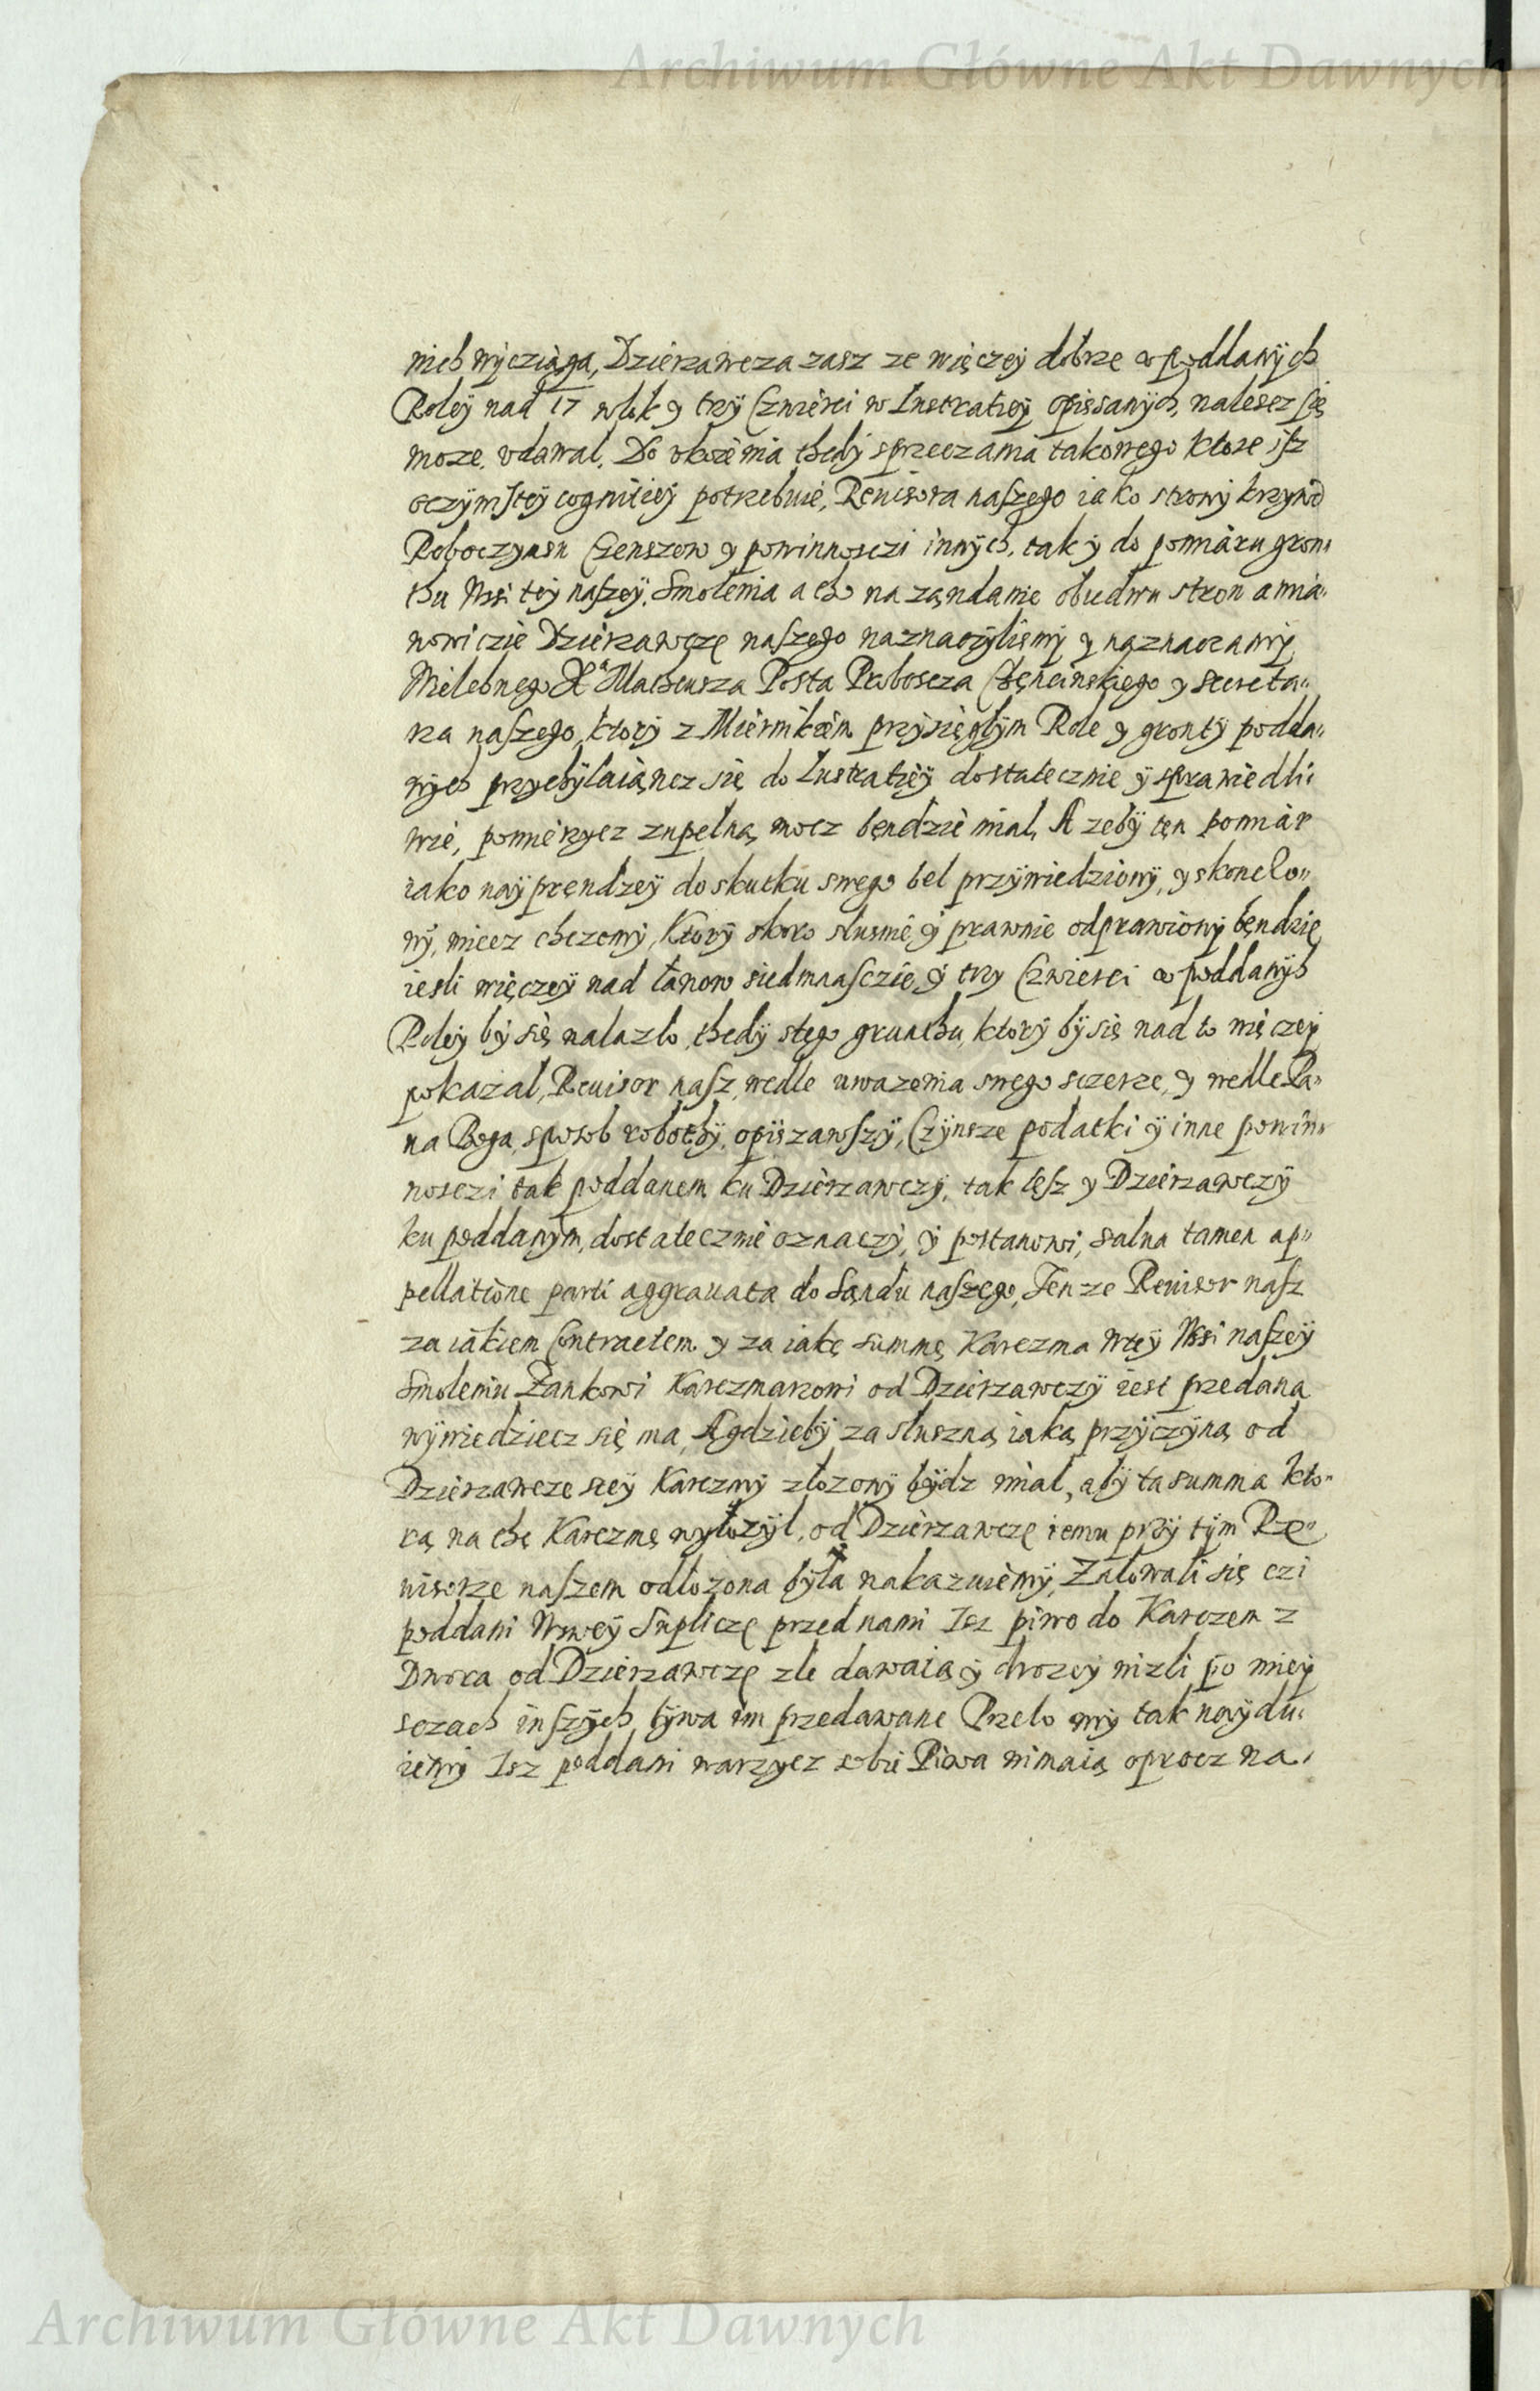 Archiwum Główne Akt Dawnych
nich wycziąga, Dzierzawcza zasz ze więczey dobrze v poddanych
Roley nad 17 wlok y trzy Czwierci w Lustratiey opissanych, nalescz się
moze, vdawal. Do vłozenia thedy sprzeczania takowego ktore isz
oczymstey cognitiey potrzebuie, Reuisora naszego iako strony krzywd
Roboczyasn Czenszow y powinnosczi innych, tak y do pomiaru gron„
thu Wsi tey naszey Smolenia a tho na ząndanie obudwu stron a mia„
nowiczie Dzierzawczę naszego naznaczylismy y naznaczamy
Wielebnego Xa Matheusza Posta Proboscza Chęncinskiego y Secreta„
rza naszego, ktory z Miernikiem przysięgłym Role y gronty podda„
nych przychylaiąncz się do Lustratiey dostatecznie y sprawiedli„
wie, pomierzycz zupelną mocz bęndzie mial, A zeby ten pomiar
iako nayprendzey do skutku swego bel przywiedziony, y skonclo„
ny, miecz chczemy, Ktory skoro slusnie y prawnie odprawiony bęndzie
iesli więczey nad łanow siedmnasczie y trzy Czwierci v poddanych
Roley by się nalazlo, thedy stego grunthu, ktory by się nad to więczey
pokazal, Reuisor nasz, wedle uwazenia swego sczerze, y wedle Pa„
na Boga, sposob robothy, opiszawszy, Czynsze podatki y inne powin„
nosczi tak poddanem ku Dzierzawczy, tak tesz y Dzierzawczy
ku poddanym, dostatecznie oznaczy, y postanowi, salua tamen ap„
pellatione parti aggrauata do Sandu naszego, Tenze Reuisor nasz
za iakiem Contractem y za iakę summę Karczma wtey Wsi naszey
Smoleniu Żankowi Karczmarzowi od Dzierzawczy iest przedana
wywiedziecz się ma, A gdzieby za sluszną iaką przyczyną od
Dzierzawcze stey Karczmy złozony bydz mial, aby ta summa kto„
rą na thę Karczmę wyłozyl, od Dzierzawczę iemu przy tym Re„
wisorze naszem odłozona była nakazuiemy, Załowali się czi
poddani Wswey Supliczę przed nami Isz piwo do Karczem z
Dwora od Dzierzawczę zle dawaią y drozey nizli po miey
sczach inszych bywa im przedawane Przeto my tak naydu„
iemy Isz poddani warzycz sobie Piwa nimaią oprocz na„
Archiwum Główne Akt Dawnych